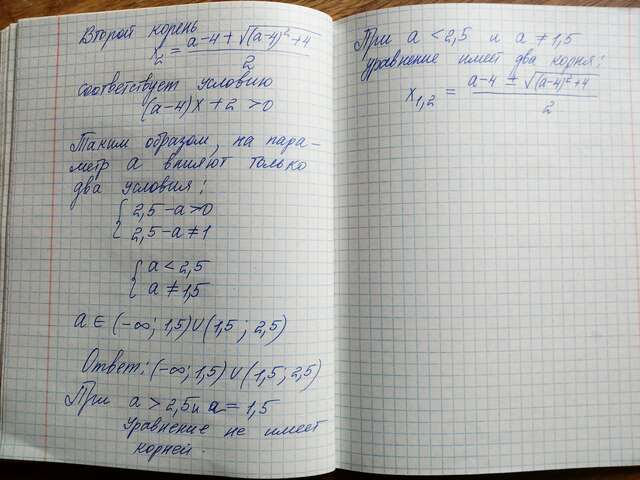 Второй корень
x₂ = (a-4+√((a-4)²+4))/2
соответствует условию
(a-4)x+2 >0
Таким образом, на пара-
метр a влияют только
два условия:
{ 2,5-a>0
{ 2,5-a≠1
{ a<2,5
{ a≠1,5
a∈(-∞; 1,5)∪(1,5; 2,5)
Ответ: (-∞; 1,5)∪(1,5; 2,5)
При a>2,5 и a=1,5
Уравнение не имеет
корней.
При a<2,5 и a≠1,5
уравнение имеет два корня:
x₁,₂ = (a-4±√((a-4)²+4))/2